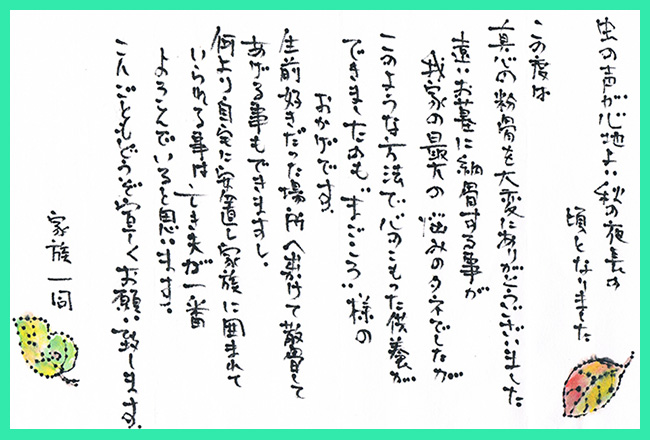 虫の声が心地よい秋の夜長の
頃となりました
この度は
真心の粉骨を大変にありがとうございました。
遠いお墓に納骨する事が
我家の最大の悩みのタネでしたが
このような方法で心のこもった供養が
できましたのも〝まごころ〟様の
おかげです。
生前好きだった場所へ出かけて散骨して
あげる事もできますし、
何より自宅に安置し家族に囲まれて
いられる事は亡き夫が一番
よろこんでいると思います。
こんごともどうぞ宜しくお願い致します。
家族一同